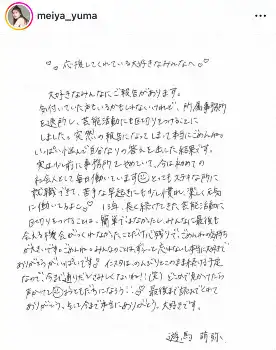 meiya_yuma
応援してくれている大好きなみんなへ
大好きなみんなにご報告があります。
気付いていた方もいるかもしれないけれど、所属事務所
を退所し、芸能活動にも区切りをつけることに
しました。突然の報告になってしまって本当にごめんね。
いっぱい悩んで自分なりの答えを出した結果です。
実は少し前に事務所を辞めていて、今は初めての
社会人として毎日働いています とってもステキな所に
就職できて、苦手な早起きにも少し慣れ、楽しく元気
に働いてるよ 13年、長く続けてきた芸能活動に
区切りをつけることは、簡単ではなかったし、みんなに最後に
会える機会がつくれなかったことだけが心残りで、ごめんねの気持ち
が大きいです。ごめんね。みんなのことは、ずっと忘れないし本当に大好きで
ありがとうがいっぱいです。インスタは、のんびりとこのまま続ける予定
なので、今まで通りだとさみしくないね!!(笑) どこかで見かけたら
声かけて おともだちになろう 最後まで読んでくれて
ありがとう。そして今まで本当にありがとう。大好きです。
遊馬 萌弥